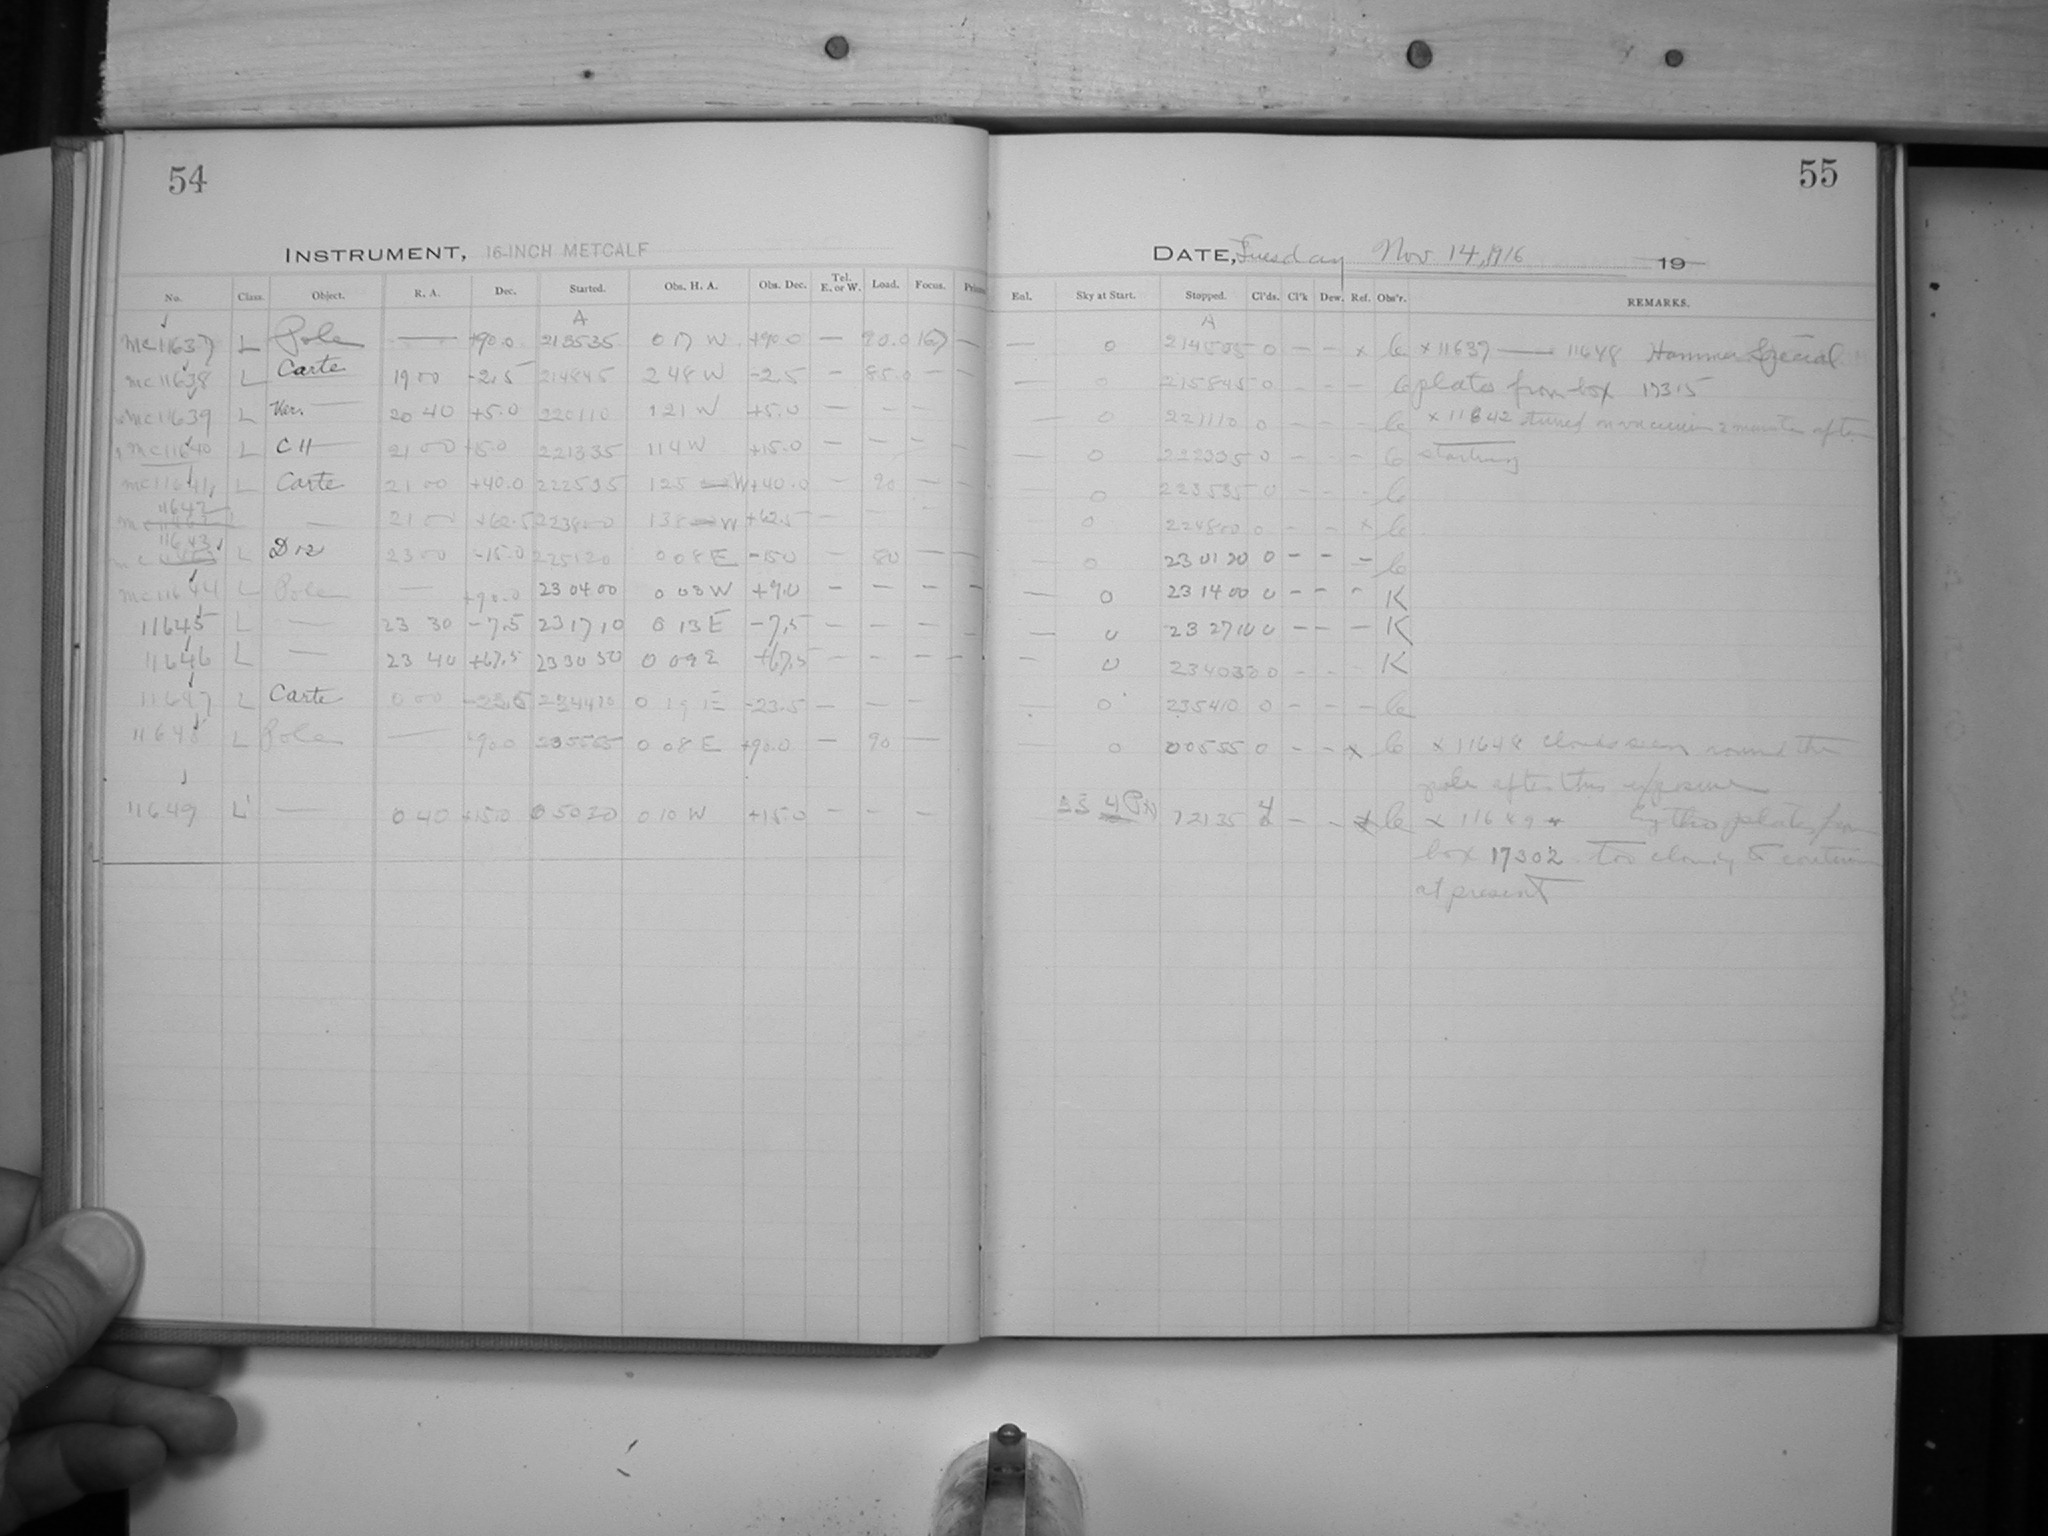 54
55
INSTRUMENT, 16-INCH METCALF
DATE, Tuesday Nov 14, 1916 19
No. Class. Object. R. A. Dec. Started. Obs. H. A. Obs. Dec. Tel. E. or W. Load. Focus. Enl. Sky at Start. Stopped. Cl'ds. Cl'k Dew. Ref. Obs'r. REMARKS.
A A
MC 11637 L Pole — +90.0 213535 0 17 W +90.0 — 90.0 167 — — 0 214535 0 — — x x 11637 — 11648 Hammer Special
MC 11638 L Carte 19 00 -2.5 214845 2 48 W -2.5 — 85.0 — — — 0 215845 0 - - - plates from box 17315
MC 11639 L Var. — 20 40 +5.0 220110 1 21 W +5.0 — — — — 0 221110 0 - - - x 11642 turned on vacuum 2 minutes after
MC 11640 L C 11 — 21 00 +15.0 221335 1 14 W +15.0 — — — — 0 222335 0 - - - starting
MC 11641 L Carte 21 00 +40.0 222535 1 25 W +40.0 — 90 — — — 0 223535 0 - - -
11642
MC — 21 00 +62.5 223800 1 38 W +62.5 — — — — 0 224800 0 - - x
11643
MC L D 12 23 00 -15.0 225120 0 08 E -15.0 — 80 — — — 0 230120 0 - - -
MC 11644 L Pole — +90.0 23 04 00 0 03 W +9.0 — — — — — 0 23 14 00 0 - - - K
11645 L — 23 30 -7.5 23 17 10 0 13 E -7.5 — — — — — 0 23 27 10 0 - - - K
11646 L — 23 40 +67.5 23 30 30 0 09 E +67.5 — — — — — 0 23 40 30 0 - - - K
11647 L Carte 0 00 -23.5 234410 0 19 E -23.5 — — — — 0 235410 0 - - -
11648 L Pole — +90.0 235555 0 08 E +90.0 — 90 — — 0 00555 0 - - x x 11648 clouds seen round the
pole after this exposure
11649 L — 0 40 +15.0 0 50 20 0 10 W +15.0 — — — 12135 4 - - x x 11649 plates from
box 17302. Too cloudy to continue
at present